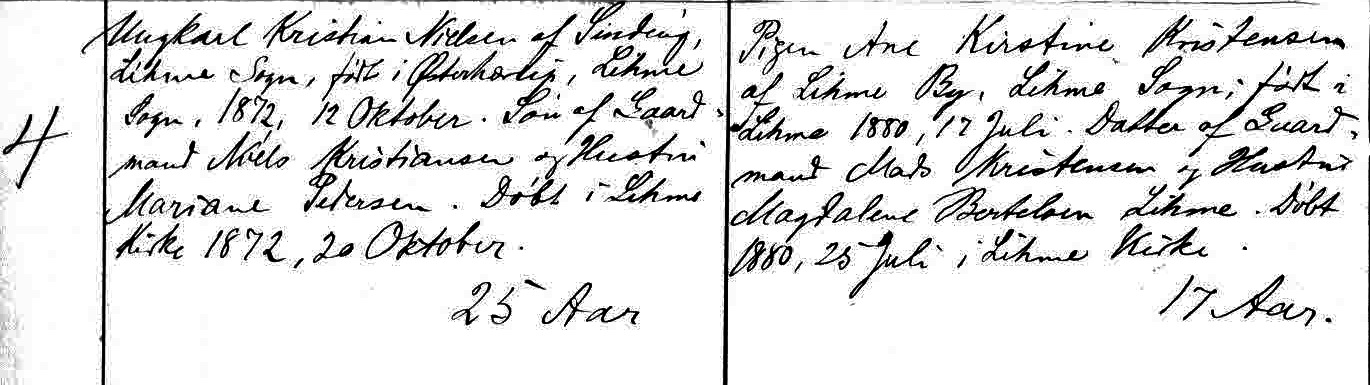 4
Ungkarl Kristian Nielsen af Sinding,
Lihme Sogn, født i Østerhærup, Lihme
Sogn, 1872, 12 Oktober. Søn af Gaard-
mand Niels Kristiansen og Hustru
Mariane Petersen. Døbt i Lihme
Kirke 1872, 20 Oktober.
25 Aar
Pigen Ane Kirstine Kristensen
af Lihme By, Lihme Sogn, født i
Lihme 1880, 17 Juli. Datter af Gaard-
mand Mads Kristensen og Hustru
Magdalene Bertelsen Lihme. Døbt
1880, 25 Juli i Lihme Kirke.
17 Aar.